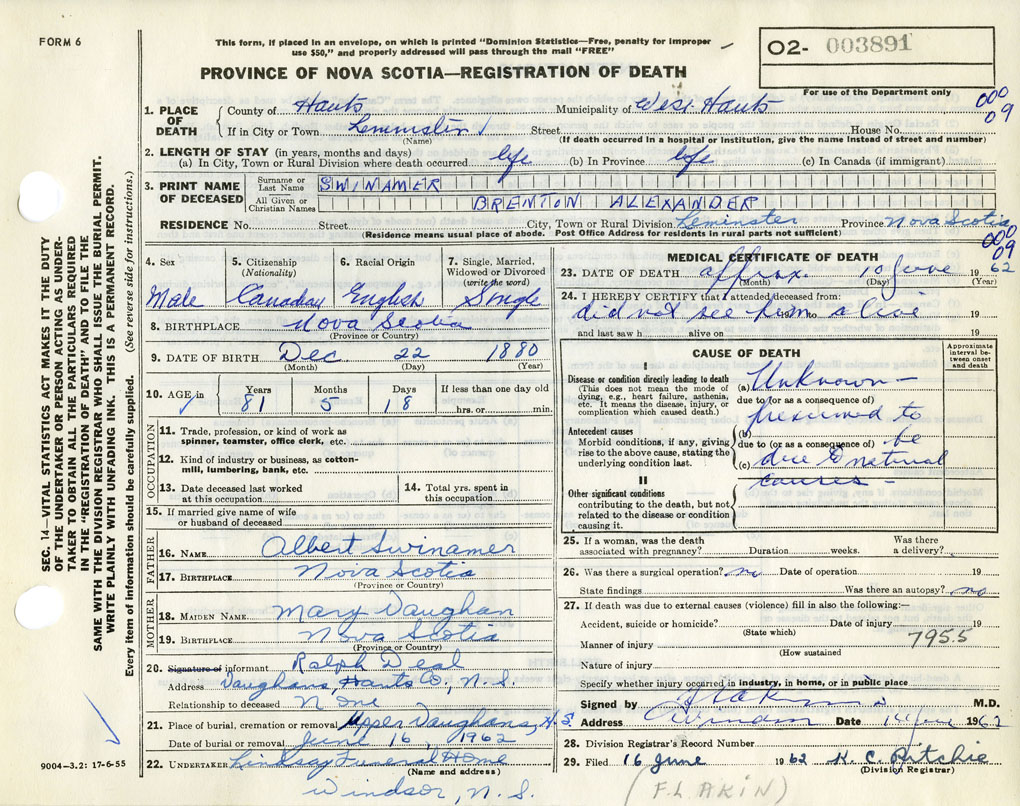 FORM 6
This form, if placed in an envelope, on which is printed "Dominion Statistics—Free, penalty for improper
use $50," and properly addressed will pass through the mail "FREE"
O2- 003891
For use of the Department only
PROVINCE OF NOVA SCOTIA—REGISTRATION OF DEATH
000
09
1. PLACE OF DEATH
County of Hants Municipality of West Hants
If in City or Town Lemminster Street House No.
(Name) (If death occurred in a hospital or institution, give the name instead of street and number)
2. LENGTH OF STAY (in years, months and days)
(a) In City, Town or Rural Division where death occurred life (b) In Province life (c) In Canada (if immigrant)
3. PRINT NAME OF DECEASED
Surname or Last Name SWINAMER
All Given or Christian Names BRENTON ALEXANDER
RESIDENCE No. Street City, Town or Rural Division Leminster Province Nova Scotia
(Residence means usual place of abode. Post Office Address for residents in rural parts not sufficient)
000
09
4. Sex 5. Citizenship (Nationality) 6. Racial Origin 7. Single, Married, Widowed or Divorced (write the word)
Male Canadian English Single
8. BIRTHPLACE Nova Scotia
(Province or Country)
9. DATE OF BIRTH Dec 22 1880
(Month) (Day) (Year)
10. AGE in Years Months Days If less than one day old
81 5 18 hrs. or min.
OCCUPATION
11. Trade, profession, or kind of work as
spinner, teamster, office clerk, etc.
12. Kind of industry or business, as cotton-
mill, lumbering, bank, etc.
13. Date deceased last worked
at this occupation
14. Total yrs. spent in
this occupation
15. If married give name of wife
or husband of deceased
FATHER
16. NAME Albert Swinamer
17. BIRTHPLACE Nova Scotia
(Province or Country)
MOTHER
18. MAIDEN NAME Mary Vaughan
19. BIRTHPLACE Nova Scotia
(Province or Country)
20. Signature of informant Ralph Deal
Address Vaughans, Hants Co., N.S.
Relationship to deceased None
21. Place of burial, cremation or removal Upper Vaughans, N.S.
Date of burial or removal June 16, 1962
22. UNDERTAKER Lindsay Funeral Home
(Name and address)
Windsor, N.S.
MEDICAL CERTIFICATE OF DEATH
23. DATE OF DEATH approx. 10 June 1962
(Month) (Day) (Year)
24. I HEREBY CERTIFY that I attended deceased from:
did not see him alive 19
and last saw h alive on 19
CAUSE OF DEATH
Approximate interval between onset and death
I
Disease or condition directly leading to death
(This does not mean the mode of
dying, e.g., heart failure, asthenia,
etc. It means the disease, injury, or
complication which caused death.)
(a) Unknown -
due to (or as a consequence of)
presumed to
Antecedent causes
Morbid conditions, if any, giving
rise to the above cause, stating the
underlying condition last.
(b)
due to (or as a consequence of) be
(c) due to natural
causes -
II
Other significant conditions
contributing to the death, but not
related to the disease or condition
causing it.
25. If a woman, was the death
associated with pregnancy? Duration weeks. Was there
a delivery?
26. Was there a surgical operation? no Date of operation 19
State findings Was there an autopsy? no
27. If death was due to external causes (violence) fill in also the following:—
Accident, suicide or homicide? Date of injury 19
(State which)
795.5
Manner of injury
(How sustained
Nature of injury
Specify whether injury occurred in industry, in home, or in public place
Signed by M.D.
Address Windsor Date 14 June 1962
28. Division Registrar's Record Number
29. Filed 16 June 1962 K. C. Ritchie
(Division Registrar)
(F.L. AKIN)
SEC. 14—VITAL STATISTICS ACT MAKES IT THE DUTY
OF THE UNDERTAKER OR PERSON ACTING AS UNDER-
TAKER TO OBTAIN ALL THE PARTICULARS REQUIRED
IN THE "REGISTRATION OF DEATH" AND FILE THE
SAME WITH THE DIVISION REGISTRAR WHO SHALL ISSUE THE BURIAL PERMIT.
WRITE PLAINLY WITH UNFADING INK. THIS IS A PERMANENT RECORD.
Every item of information should be carefully supplied. (See reverse side for instructions.)
9004-3.2: 17-6-55